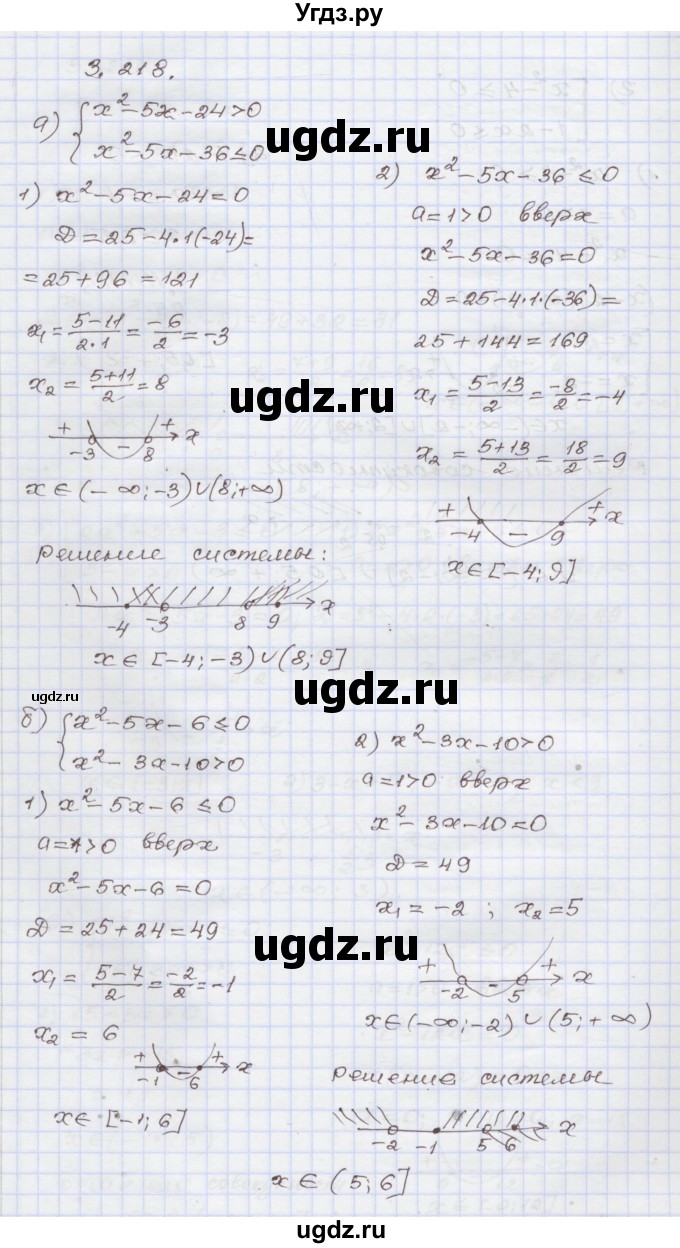 Угдз.ру
3. 218.
а) { x² - 5x - 24 > 0
x² - 5x - 36 ≤ 0
ugdz.ru
1) x² - 5x - 24 = 0
D = 25 - 4·1(-24) =
= 25 + 96 = 121
x₁ = (5-11)/(2·1) = -6/2 = -3
x₂ = (5+11)/2 = 8
+ - + x
-3 8
x ∈ (-∞; -3) ∪ (8; +∞)
2) x² - 5x - 36 ≤ 0
a = 1 > 0 вверх
x² - 5x - 36 = 0
D = 25 - 4·1·(-36) =
25 + 144 = 169
x₁ = (5-13)/2 = -8/2 = -4
x₂ = (5+13)/2 = 18/2 = 9
+ - + x
-4 9
x ∈ [-4; 9]
ugdz.ru
Решение системы:
-4 -3 8 9 x
x ∈ [-4; -3) ∪ (8; 9]
ugdz.ru
ugdz.ru
б) { x² - 5x - 6 ≤ 0
x² - 3x - 10 > 0
1) x² - 5x - 6 ≤ 0
a = 1 > 0 вверх
x² - 5x - 6 = 0
D = 25 + 24 = 49
x₁ = (5-7)/2 = -2/2 = -1
x₂ = 6
+ - + x
-1 6
x ∈ [-1; 6]
2) x² - 3x - 10 > 0
a = 1 > 0 вверх
x² - 3x - 10 = 0
D = 49
x₁ = -2 ; x₂ = 5
ugdz.ru
+ - + x
-2 5
x ∈ (-∞; -2) ∪ (5; +∞)
Решение системы
-2 -1 5 6 x
x ∈ (5; 6]
ugdz.ru